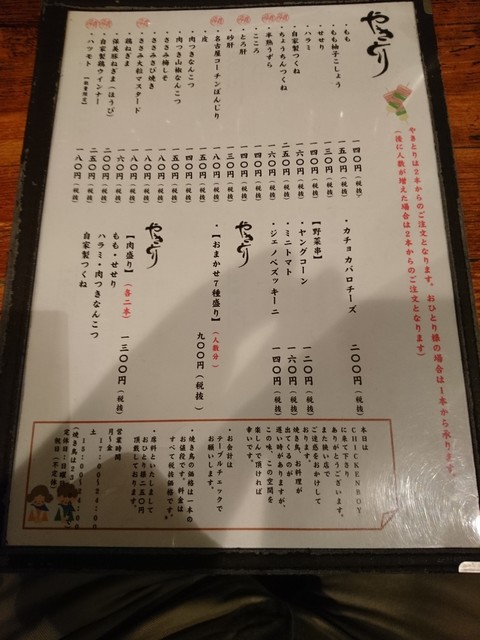 やきとり
やきとりは2本からのご注文となります。おひとり様の場合は1本から承ります。
(後に人数が増えた場合は2本からのご注文となります)
・もも
・もも柚子こしょう
・せせり
・ハラミ
・自家製つくね
・ちょうちんつくね
・半熟うずら
・こころ
・とろ肝
・砂肝
・名古屋コーチンぼんじり
・皮
・肉つきなんこつ
・肉つき山椒なんこつ
・ささみ梅しそ
・ささみさび焼き
・ささみ大粒マスタード
・鶏ねぎま
・保美豚ねぎま(ほうび)
・自家製鶏ウインナー
・ハツモト【数量限定】
一四〇円(税抜)
一五〇円(税抜)
一三〇円(税抜)
一四〇円(税抜)
一五〇円(税抜)
二五〇円(税抜)
一六〇円(税抜)
一四〇円(税抜)
一四〇円(税抜)
一三〇円(税抜)
一八〇円(税抜)
一五〇円(税抜)
一四〇円(税抜)
一五〇円(税抜)
一八〇円(税抜)
一八〇円(税抜)
一八〇円(税抜)
一六〇円(税抜)
二〇〇円(税抜)
二五〇円(税抜)
一八〇円(税抜)
・カチョカバロチーズ
二〇〇円(税抜)
【野菜串】
・ヤングコーン
一二〇円(税抜)
・ミニトマト
一六〇円(税抜)
・ジェノベズッキーニ
一四〇円(税抜)
やきとり
・【おまかせ7種盛り】(人数分)
九〇〇円(税抜)
やきとり
【肉盛り】(各二本)
もも・せせり
一三〇〇円(税抜)
ハラミ・肉つきなんこつ
自家製つくね
本日はCHICKENBOY
に来て下さり
ありがとうございます。
また狭い店で
ご迷惑をおかけして
おります。
焼き鳥、お料理が
出てくるのが
遅い時がありますが、
この味、この空間を
楽しんで頂ければ
幸いです。
・お会計は
テーブルチェックで
お願いします。
・焼き鳥の価格は一本の
価格です。料金は
すべて税抜価格です。
・席料といたしまして
おひとり様二五〇円
頂戴しております。
営業時間
月~金
17:00~24:00
土
16:00~24:00
定休日:日曜日
祝日(不定休)